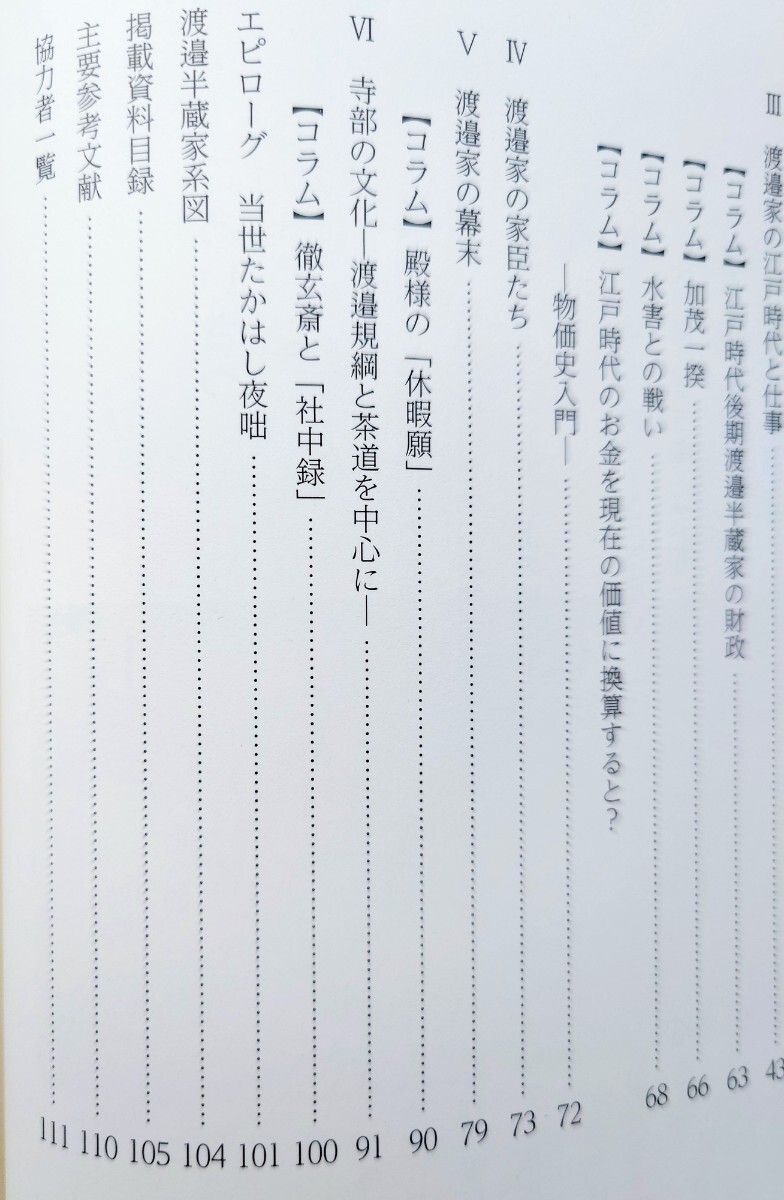 Ⅲ 渡邉家の江戸時代と仕事 43
【コラム】江戸時代後期渡邉半蔵家の財政 63
【コラム】加茂一揆 66
【コラム】水害との戦い 68
【コラム】江戸時代のお金を現在の価値に換算すると?
―物価史入門― 72
Ⅳ 渡邉家の家臣たち 73
Ⅴ 渡邉家の幕末 79
【コラム】殿様の「休暇願」 90
Ⅵ 寺部の文化―渡邉規綱と茶道を中心に― 91
【コラム】徹玄斎と「社中録」 100
エピローグ 当世たかはし夜咄 101
渡邉半蔵家系図 104
掲載資料目録 105
主要参考文献 110
協力者一覧 111